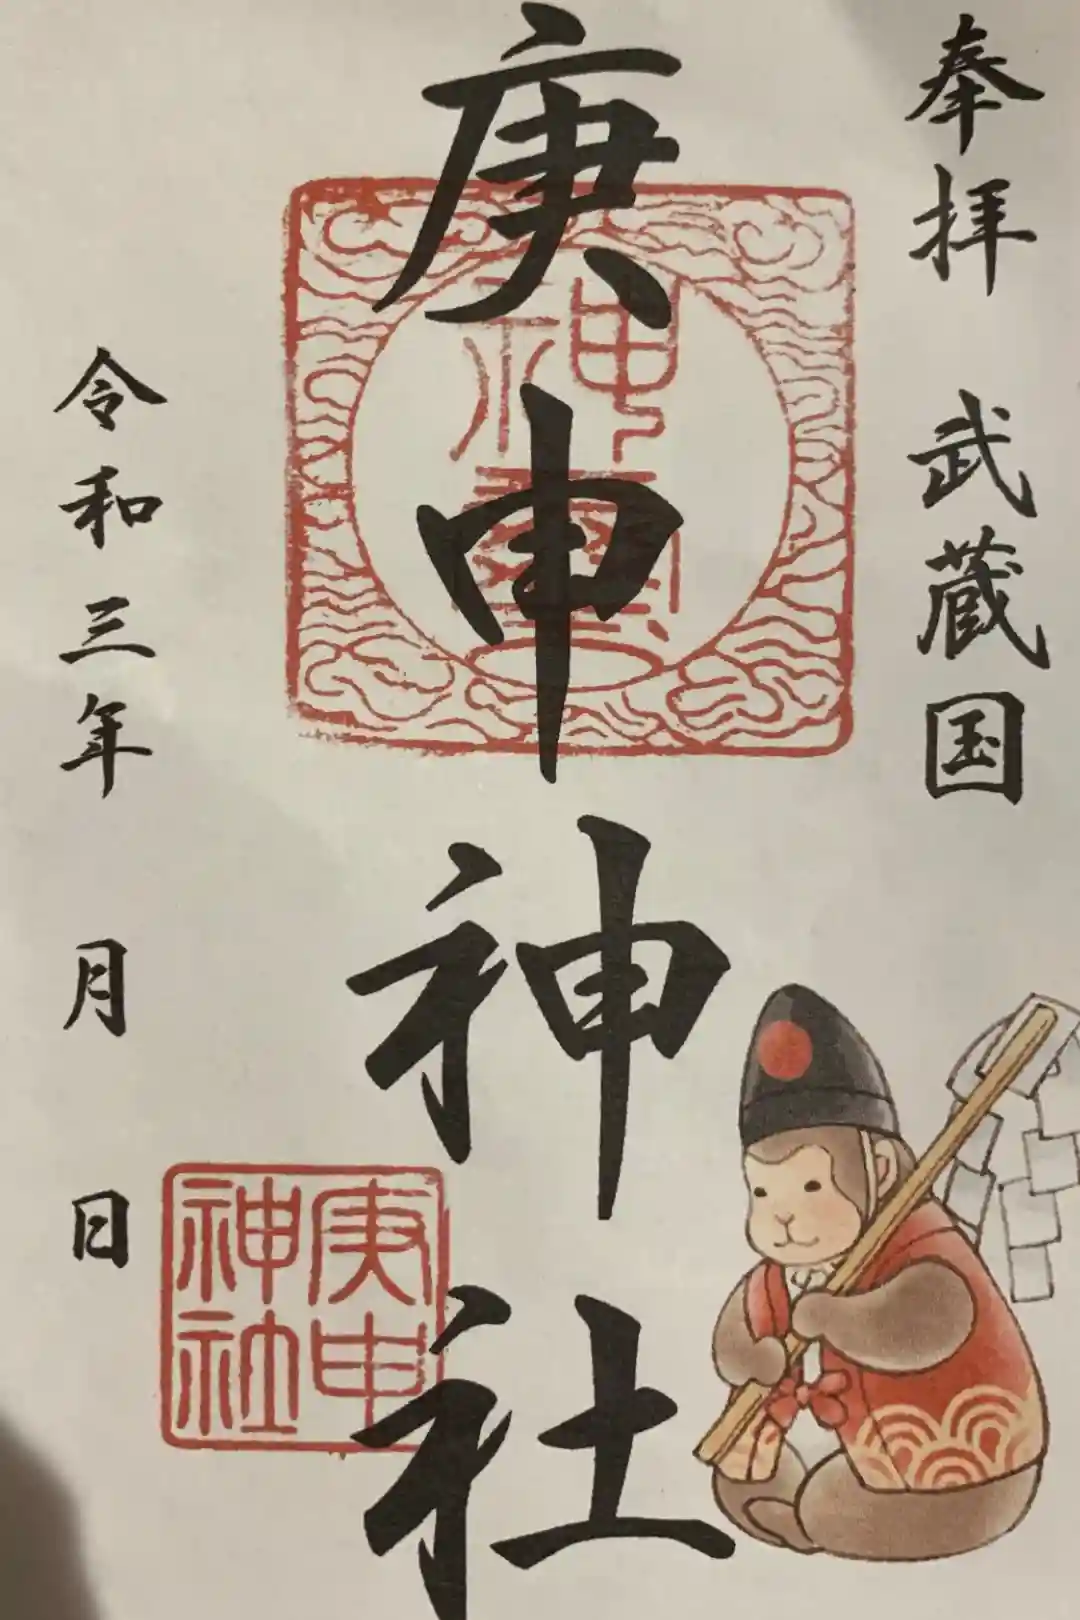 奉拝 武蔵国
庚申神社
庚申
神社
令和三年 月 日